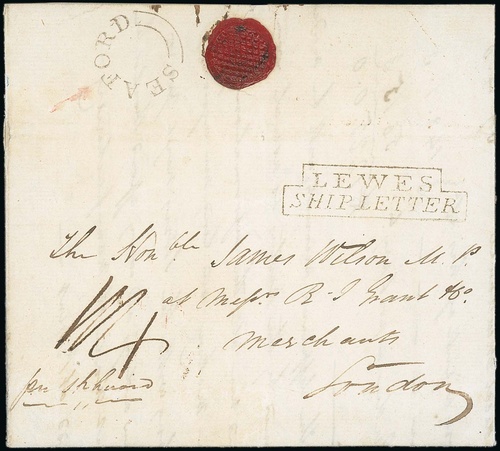 SEAFORD
LEWES
SHIP LETTER
The Honble James Wilson M.P.
at Messrs R. J Grant & Co.
Merchants
London
per